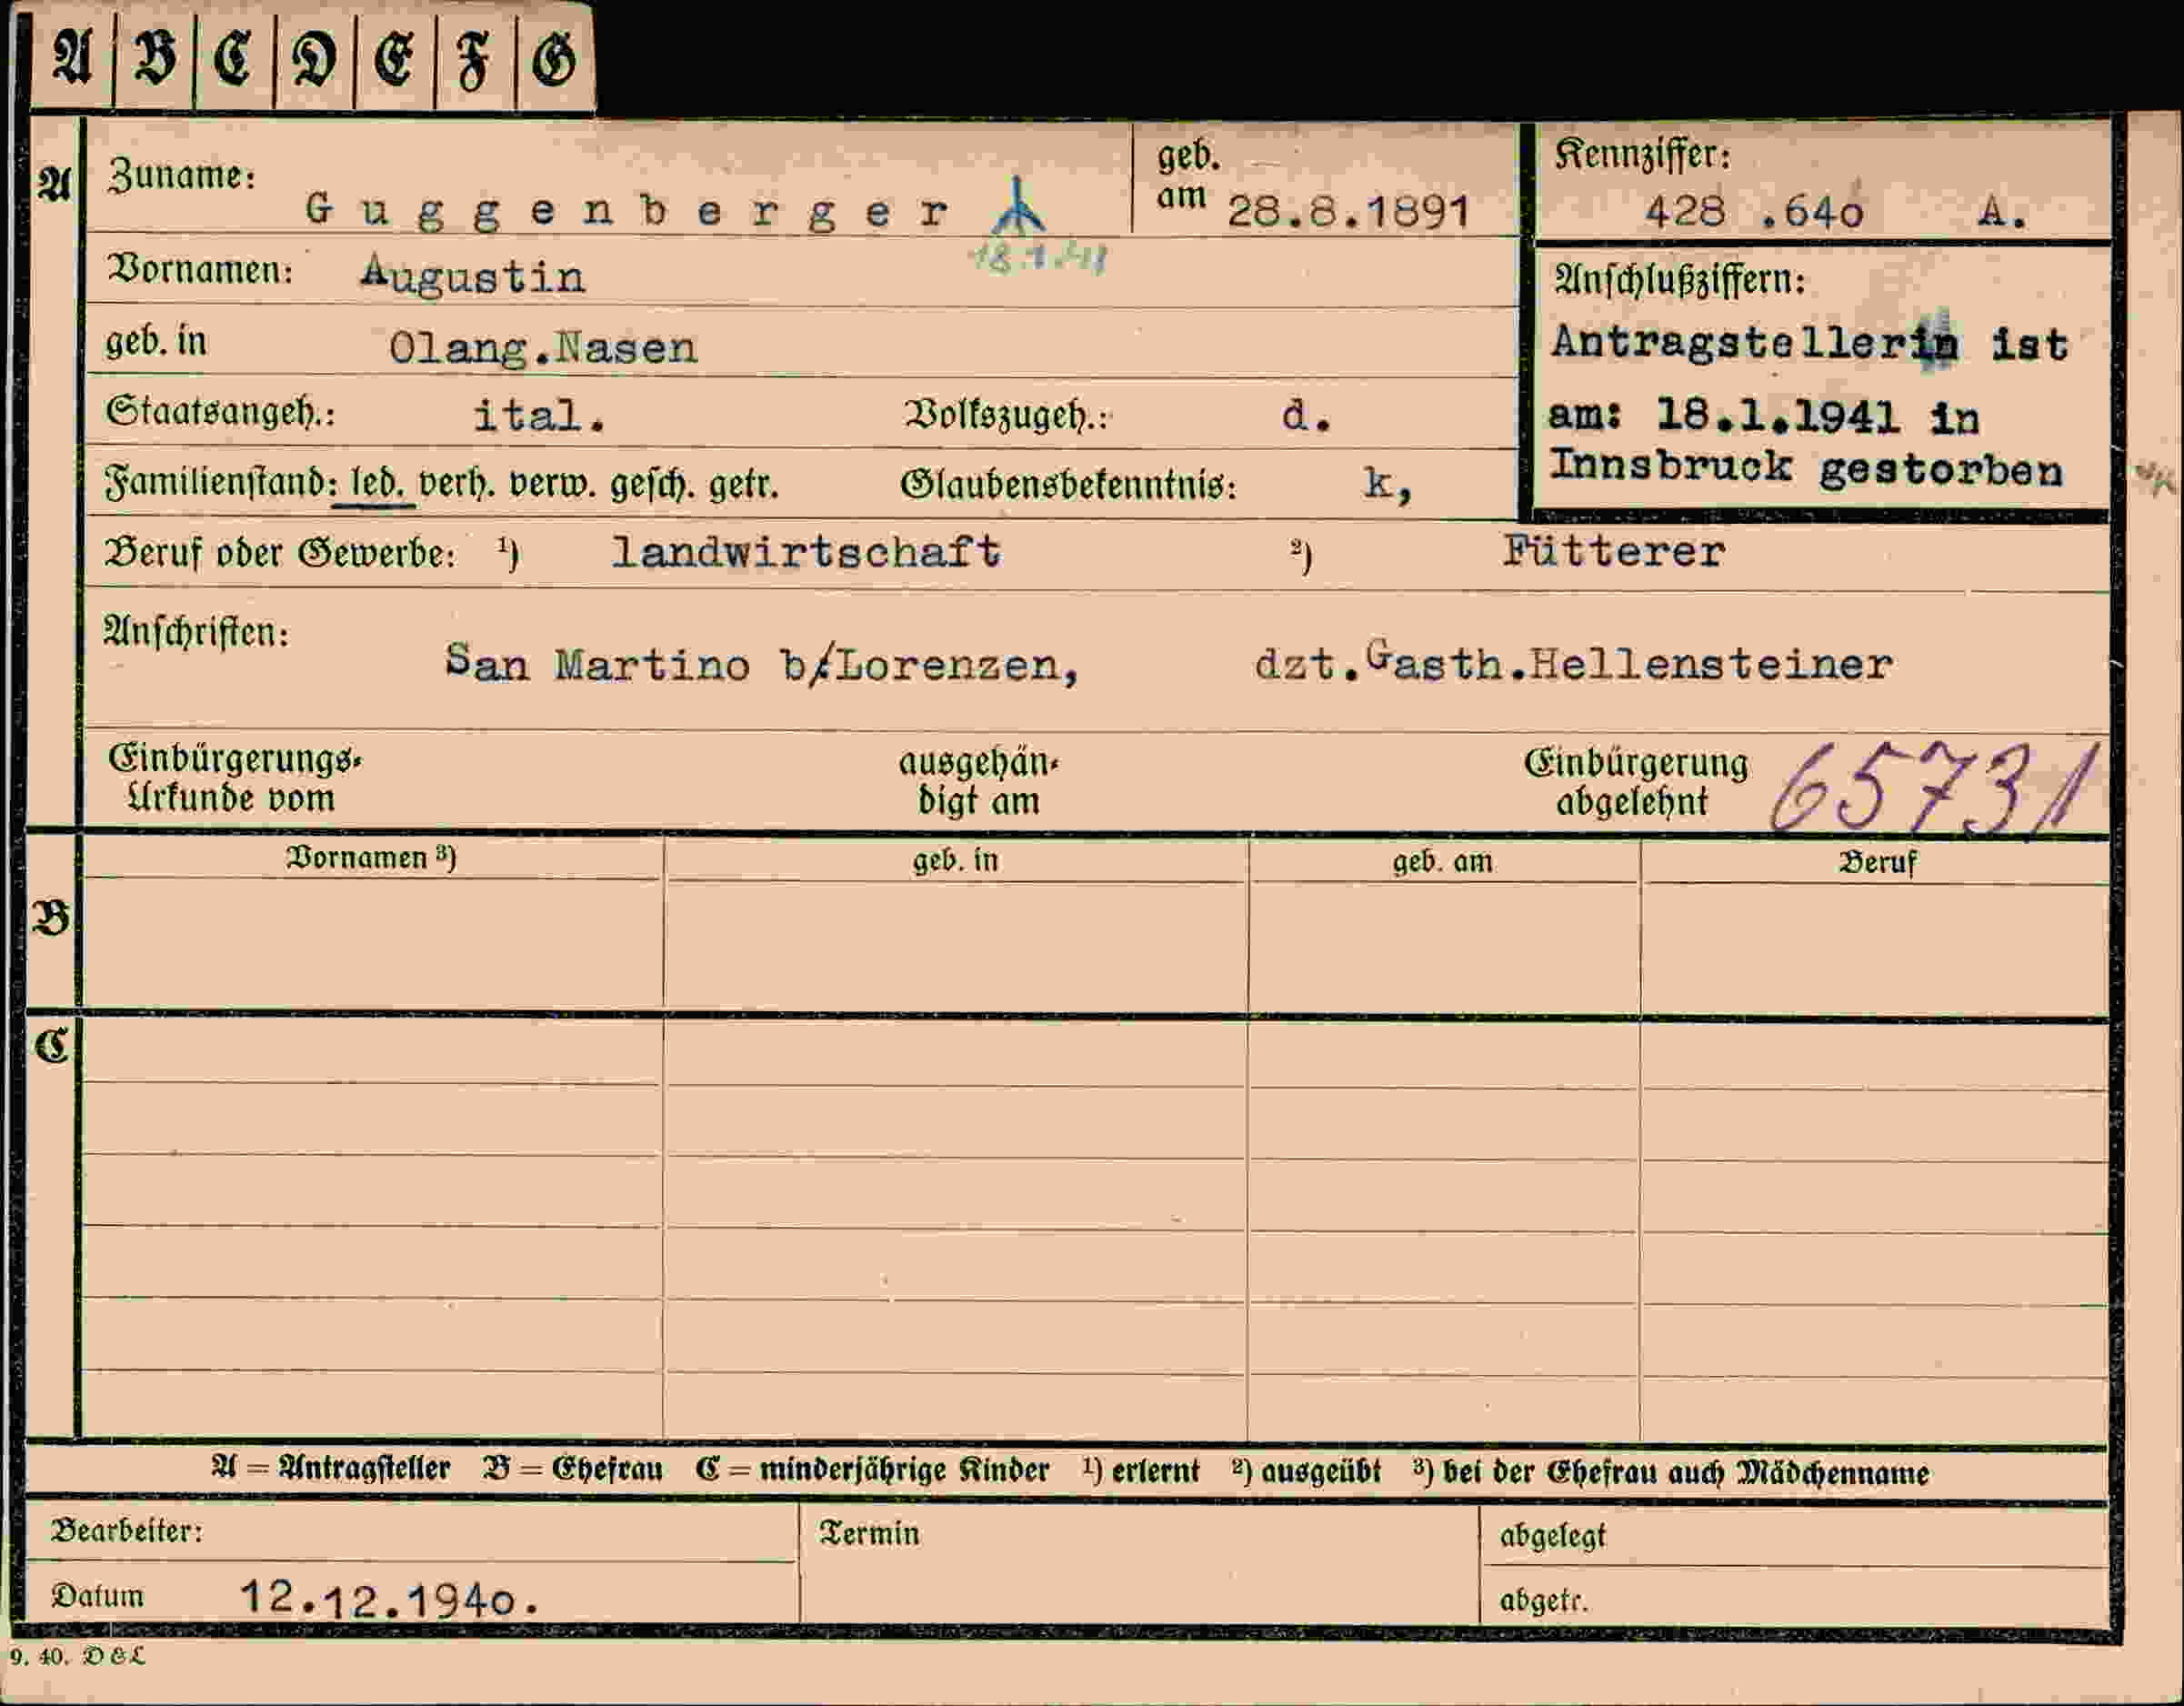 A B C D E F G
A Zuname: Guggenberger geb. am 28.8.1891 Kennziffer: 428 .64o A.
18.1.41
Vornamen: Augustin
geb. in Olang.Nasen
Staatsangeh.: ital. Volkszugeh.: d.
Familienstand: led. verh. verw. gesch. getr. Glaubensbekenntnis: k,
Anschlußziffern:
Antragstellerin ist
am: 18.1.1941 in
Innsbruck gestorben
Beruf oder Gewerbe: ¹) landwirtschaft ²) Fütterer
Anschriften: San Martino b/Lorenzen, dzt.Gasth.Hellensteiner
Einbürgerungs-Urkunde vom ausgehändigt am Einbürgerung abgelehnt 65731
Vornamen ³) geb. in geb. am Beruf
B
C
A = Antragsteller B = Ehefrau C = minderjährige Kinder ¹) erlernt ²) ausgeübt ³) bei der Ehefrau auch Mädchenname
Bearbeiter: Termin abgelegt
Datum 12.12.194o. abgetr.
9. 40. D & L